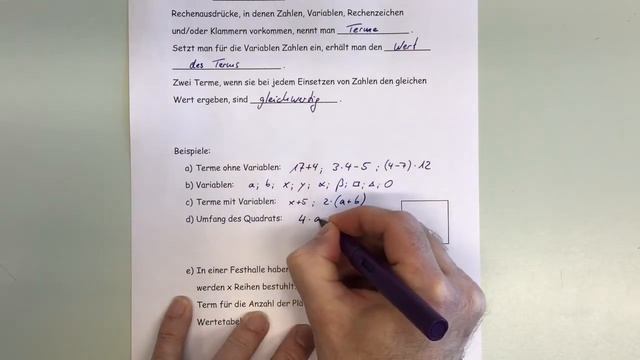 Rechenausdrücke, in denen Zahlen, Variablen, Rechenzeichen
und/oder Klammern vorkommen, nennt man Terme.
Setzt man für die Variablen Zahlen ein, erhält man den Wert
des Terms.
Zwei Terme, wenn sie bei jedem Einsetzen von Zahlen den gleichen
Wert ergeben, sind gleichwertig.
Beispiele:
a) Terme ohne Variablen: 17+4; 3·4-5; (4-7)·12
b) Variablen: a; b; x; y; α; β; □; △; O
c) Terme mit Variablen: x+5; 2·(a+b)
d) Umfang des Quadrats: 4·a
e) In einer Festhalle haben
werden x Reihen bestuhlt.
Term für die Anzahl der